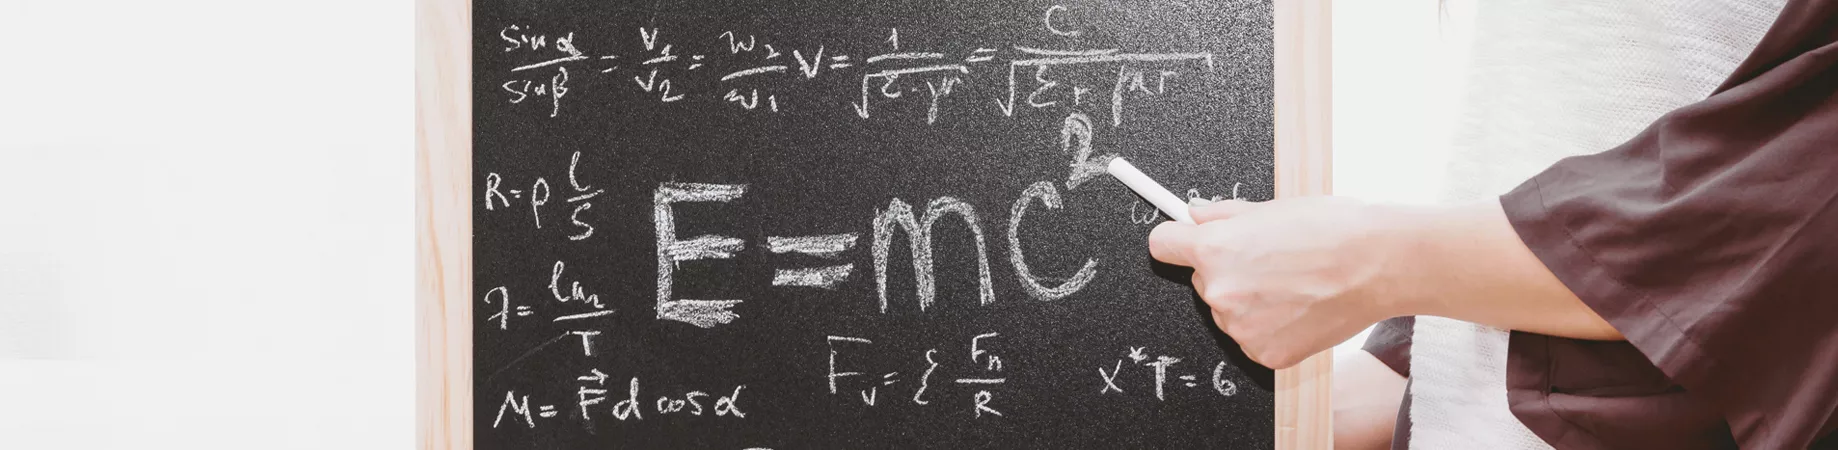 sin α / sin β = V1 / V2 = w2 / w1 V = 1 / √Σ·μ = C / √Σr μr
R=ρ l / S
E=mc²
λ= ln2 / T
Fv= { Fn / R
X*T=6
M= F⃗ d cos α